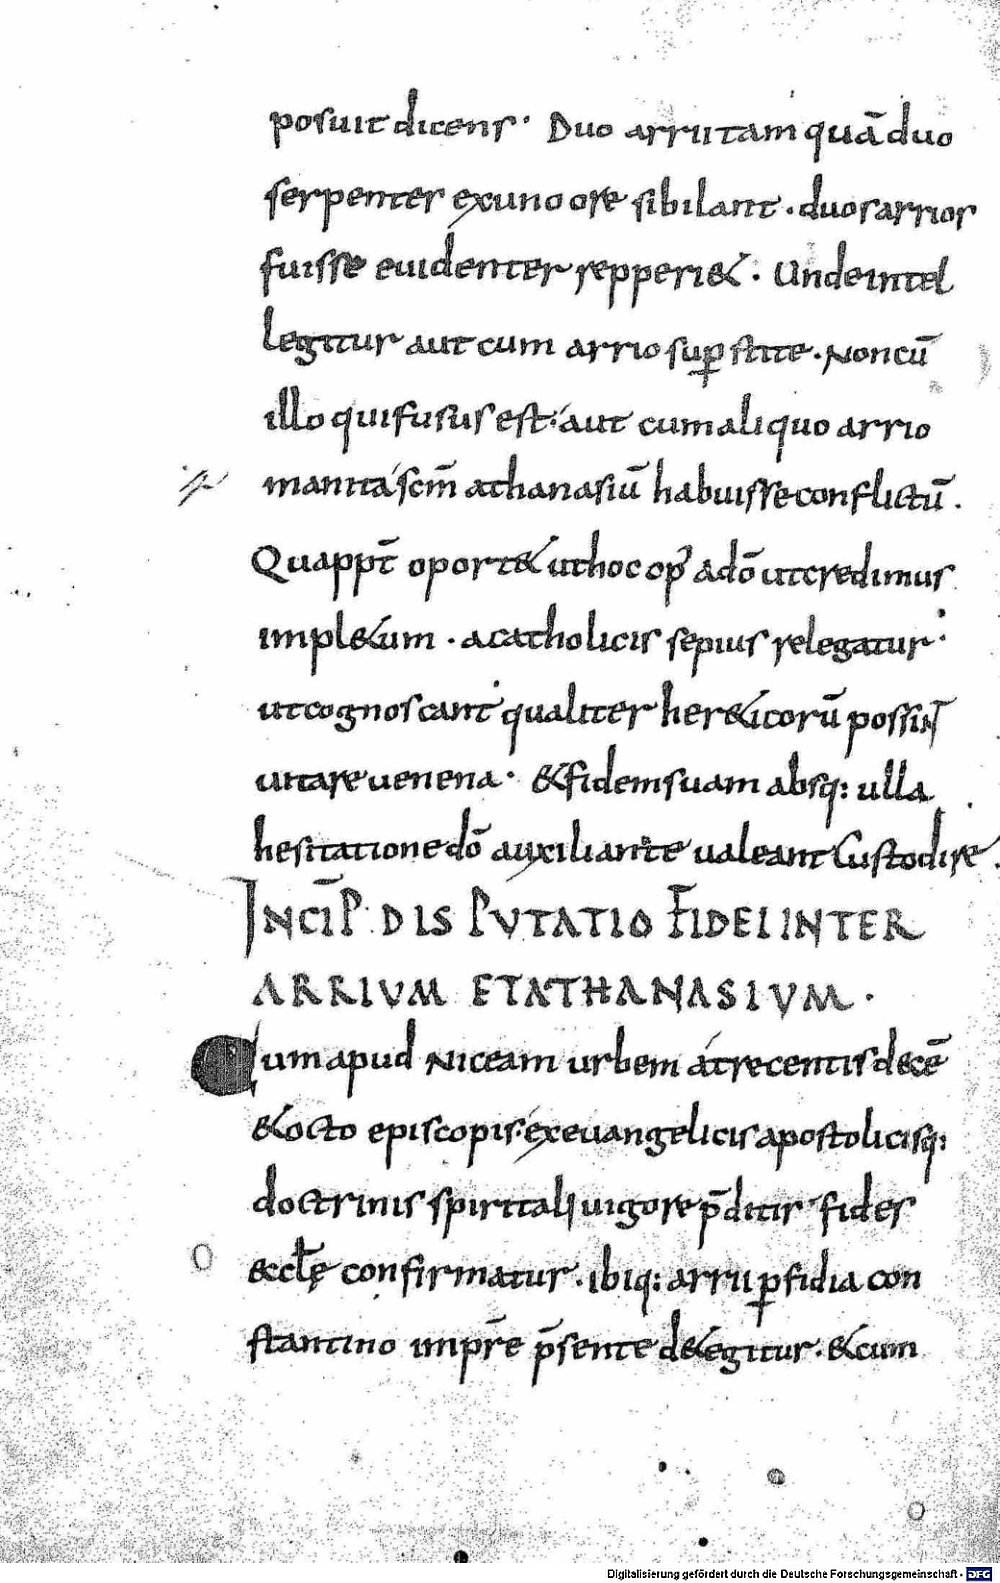 posuit dicens· Duo arrii tam quā duo
serpentes ex uno ore sibilant· duos arrios
fuisse euidenter repperi&· Unde intel
legitur aut cum arrio sup̱stite· Non cū
illo qui fusus est· aut cum aliquo arrio
manita sc̄m athanasiū habuisse conflictū·
Quapp̄t oport& ut hoc op' a dō ut credimus
impl&um· a catholicis sepius relegatur·
ut cognoscant qualiter her&icorū possint
uitare uenena· & fidem suam absq: ulla
hesitatione dō auxiliante ualeant custodire·
INCIP̄ DISPUTATIO FIDEI INTER
ARRIVM ET ATHANASIVM·
Cum apud Niceam urbem a trecentis decē
& octo episcopis· ex euangelicis apostolicisq:
doctrinis spiritali uigore p̄ditis· fides
eccl̄ę confirmatur· ibiq: arrii p̱fidia con
stantino impr̄e p̄sente d&egitur· & cum
Digitalisierung gefördert durch die Deutsche Forschungsgemeinschaft - DFG